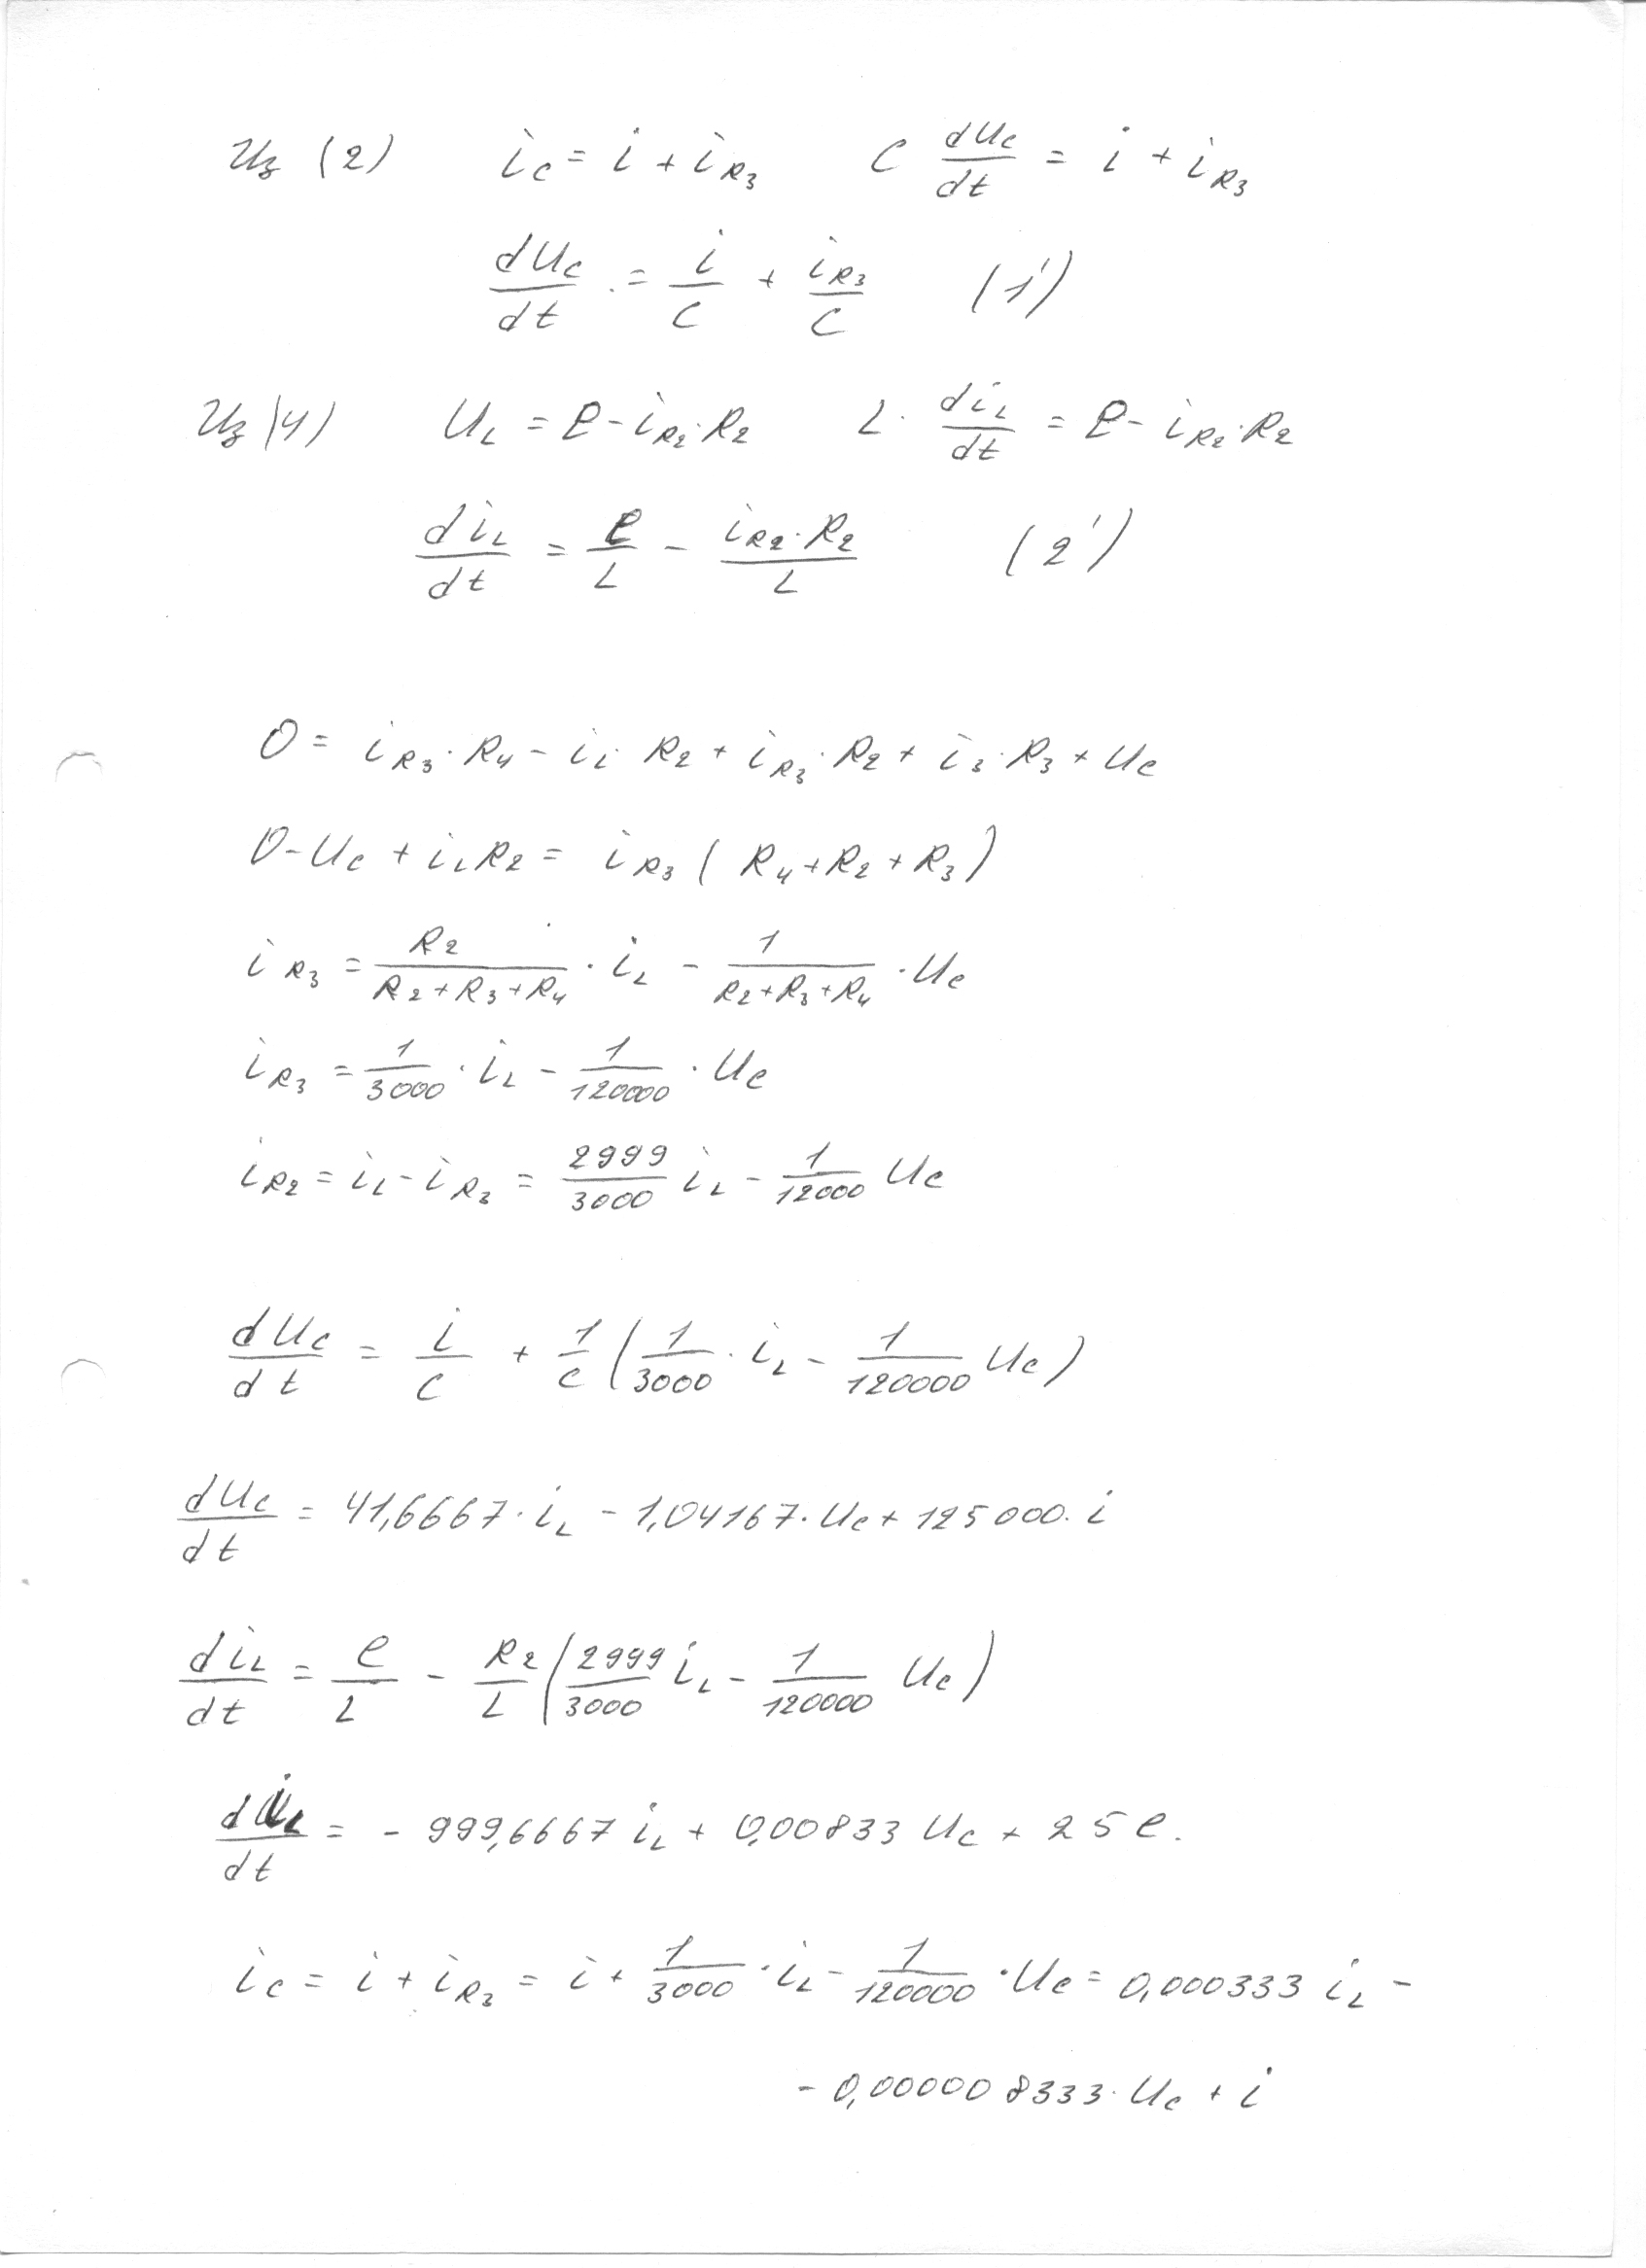 Из (2) i_C = i + i_R3 C dU_C/dt = i + i_R3
dU_C/dt = i/C + i_R3/C (1')
Из (4) U_L = e - i_R2·R2 L· di_L/dt = e - i_R2·R2
di_L/dt = e/L - i_R2·R2/L (2')
0 = i_R3·R4 - i_L·R2 + i_R3·R2 + i_3·R3 + U_C
0 - U_C + i_L R2 = i_R3 (R4 + R2 + R3)
i_R3 = R2/(R2+R3+R4) · i_L - 1/(R2+R3+R4) · U_C
i_R3 = 1/3000 · i_L - 1/120000 · U_C
i_R2 = i_L - i_R3 = 2999/3000 i_L - 1/12000 U_C
dU_C/dt = i/C + 1/C (1/3000 · i_L - 1/120000 U_C)
dU_C/dt = 41,6667· i_L - 1,04167· U_C + 125000· i
di_L/dt = e/L - R2/L (2999/3000 i_L - 1/120000 U_C)
di_L/dt = - 999,6667 i_L + 0,00833 U_C + 25 e.
i_C = i + i_R3 = i + 1/3000 · i_L - 1/120000 · U_C = 0,000333 i_L -
- 0,000008333· U_C + i